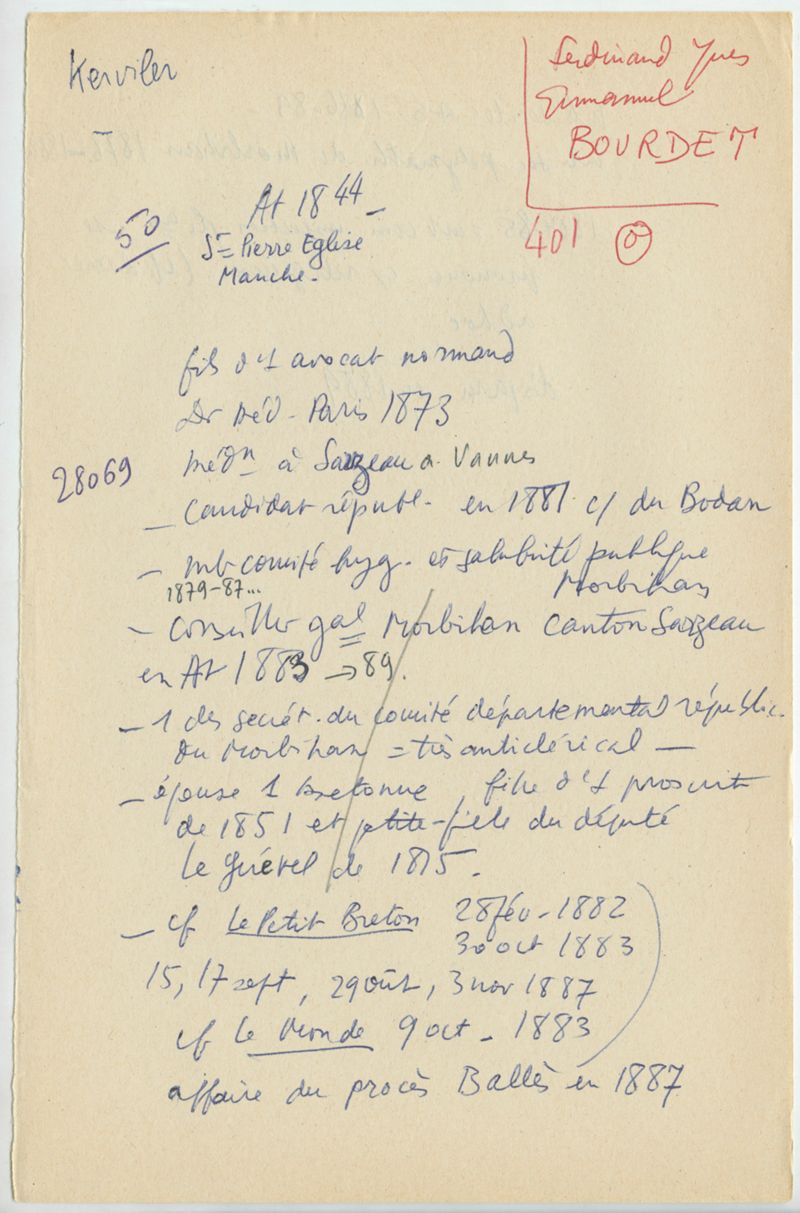 Kerviler
Ferdinand Yves
Emmanuel
BOURDET
401 0
50
At 1844_
St Pierre Eglise
Manche.
fils d'1 avocat normand
Dr Méd - Paris 1873
28069
médn à Sarzeau a. Vannes
_ Candidat républ. en 1881 c/ du Bodan
- mb comité hyg. et salubrité publique
Morbihan
1879-87...
- Conseiller gal Morbihan Canton Sarzeau
en At 1883 → 89.
- 1 des secrét. du comité départemental républic.
du Morbihan = très anticlérical —
- épouse 1 bretonne, fille d'1 proscrit
de 1851 et petite-fille du député
Le Guével de 1815.
- cf Le Petit Breton 28 fév - 1882
30 oct 1883
15, 17 sept, 29 août, 3 nov 1887
cf Le Monde 9 oct - 1883
affaire du procès Ballès en 1887